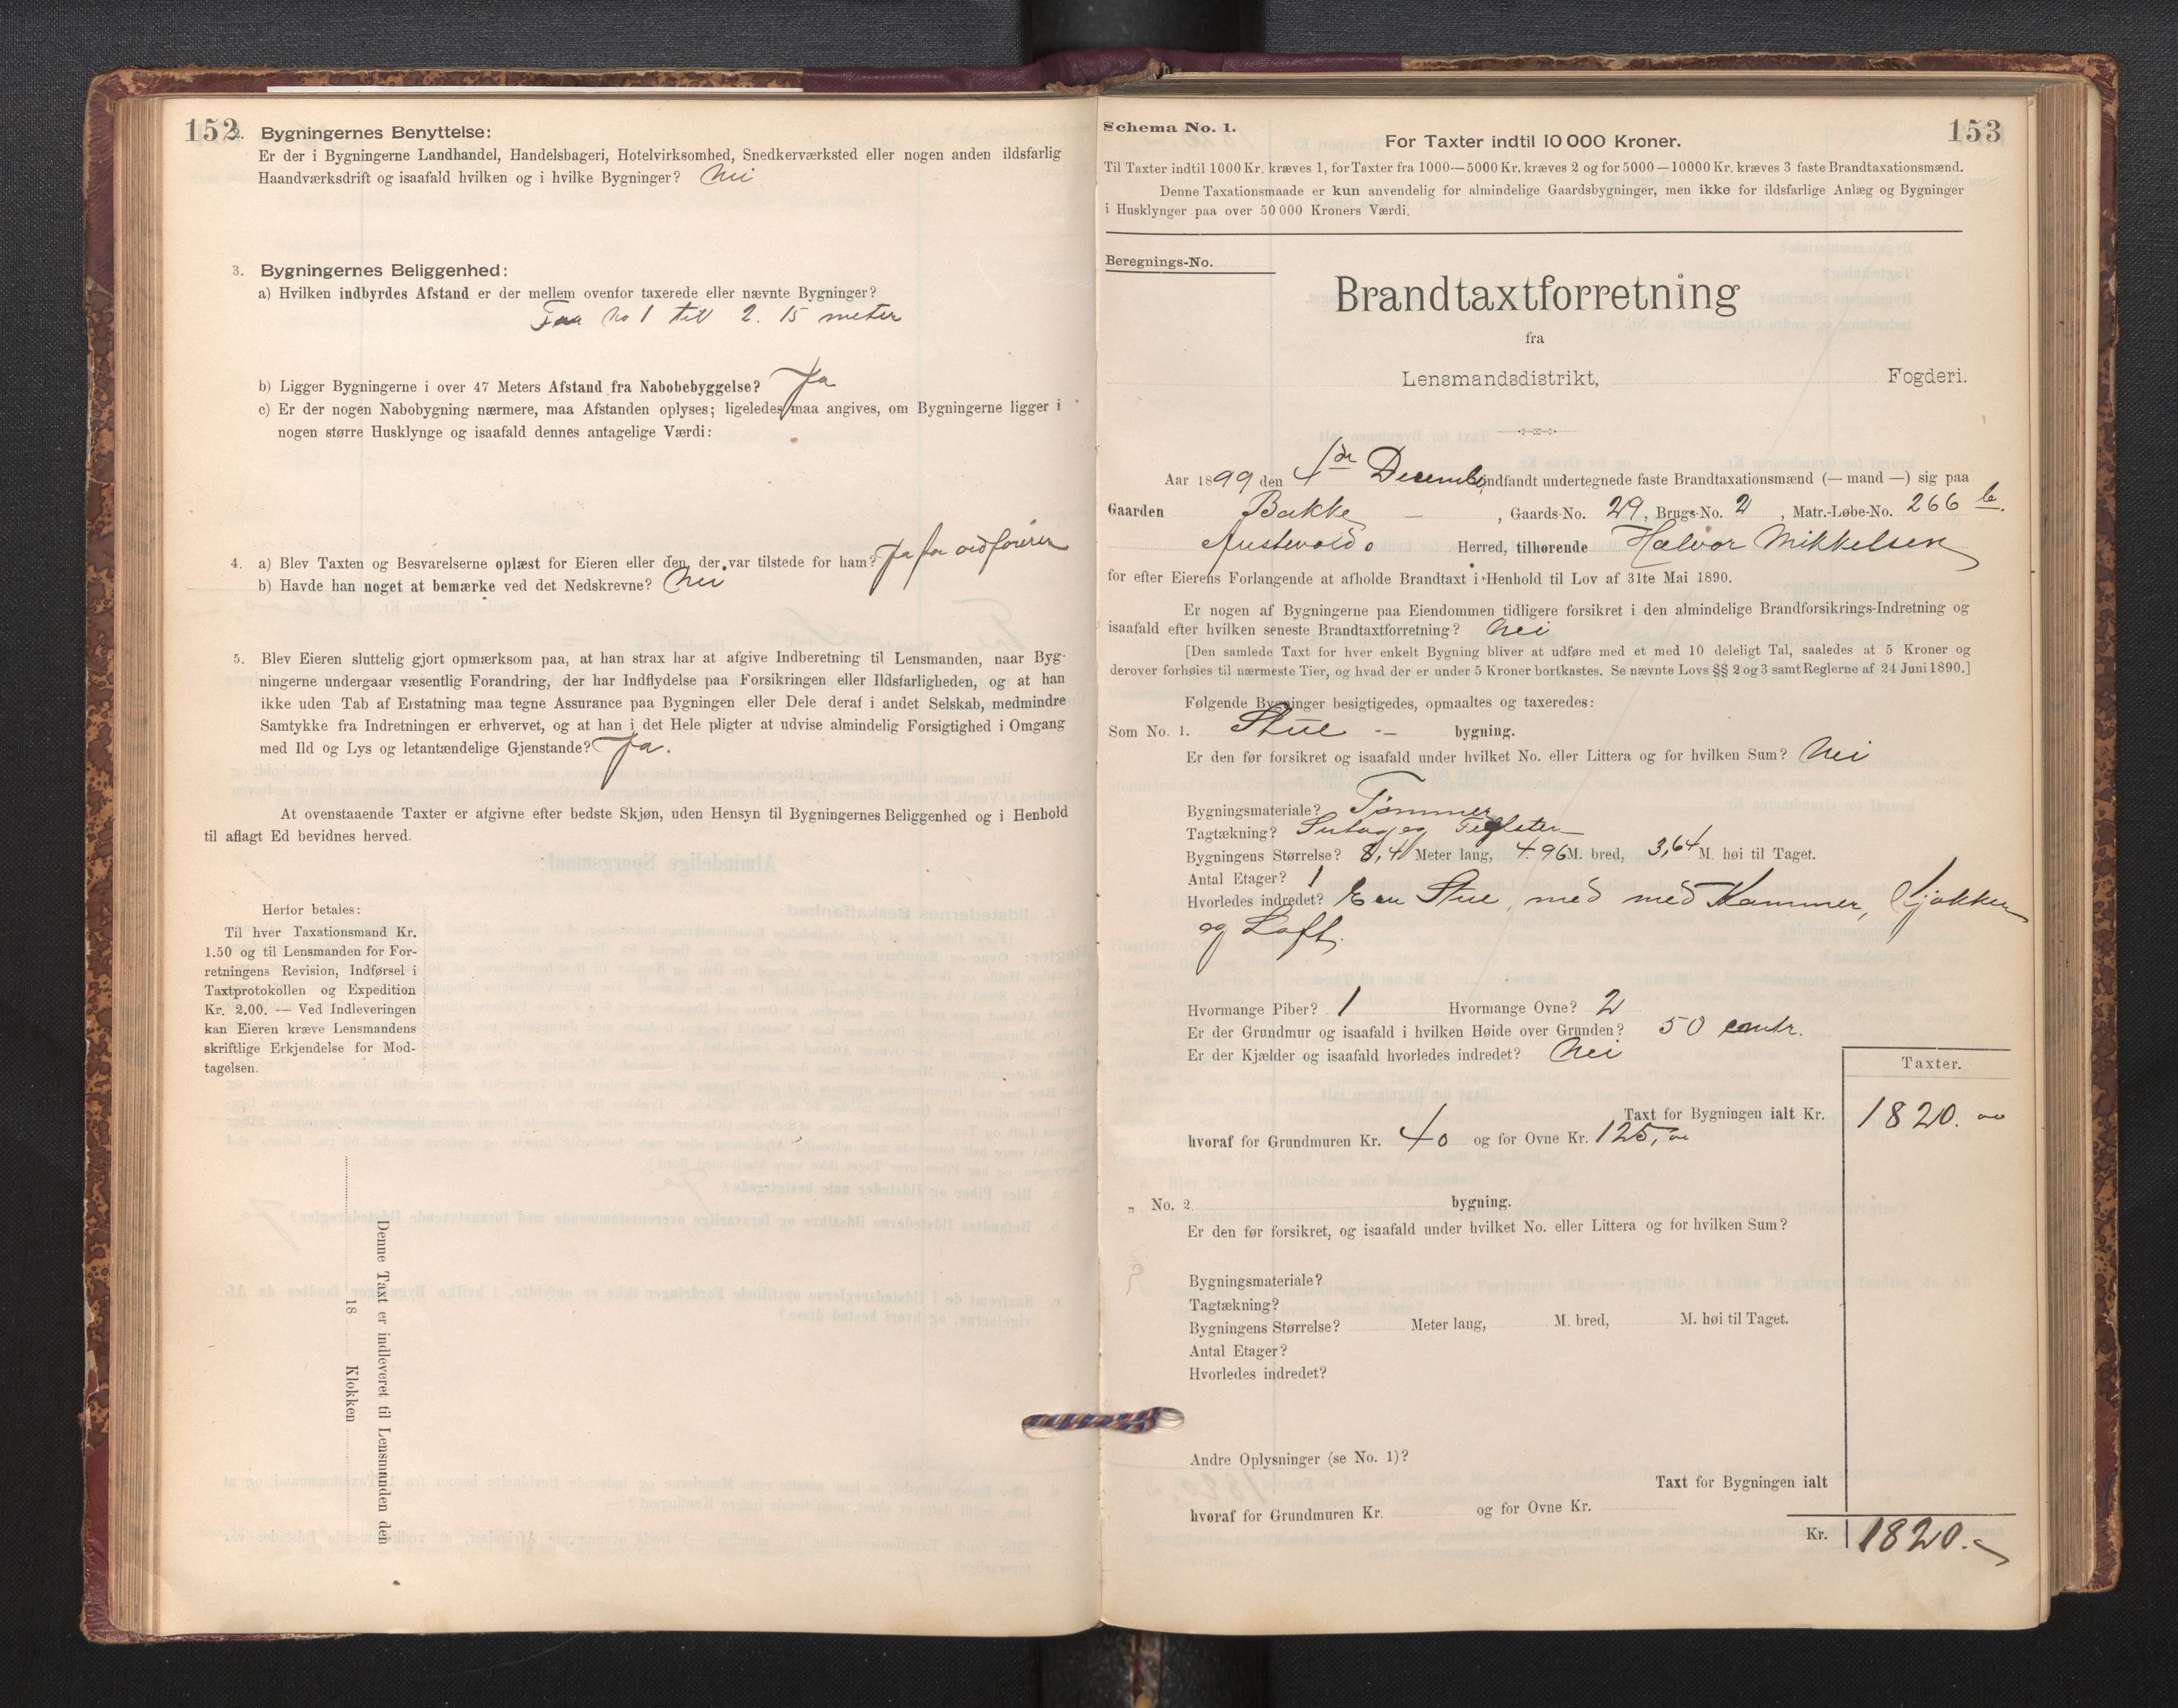 152
2. Bygningernes Benyttelse:
Er der i Bygningerne Landhandel, Handelsbageri, Hotelvirksomhed, Snedkerværksted eller nogen anden ildsfarlig
Haandværksdrift og isaafald hvilken og i hvilke Bygninger? Nei
3. Bygningernes Beliggenhed:
a) Hvilken indbyrdes Afstand er der mellem ovenfor taxerede eller nævnte Bygninger?
Fra No 1 til 2. 15 meter
b) Ligger Bygningerne i over 47 Meters Afstand fra Nabobebyggelse? Ja
c) Er der nogen Nabobygning nærmere, maa Afstanden oplyses; ligeledes maa angives, om Bygningerne ligger i
nogen større Husklynge og isaafald dennes antagelige Værdi:
4. a) Blev Taxten og Besvarelserne oplæst for Eieren eller den, der var tilstede for ham? Ja
b) Havde han noget at bemærke ved det Nedskrevne? Nei
5. Blev Eieren sluttelig gjort opmærksom paa, at han strax har at afgive Indberetning til Lensmanden, naar Byg-
ningerne undergaar væsentlig Forandring, der har Indflydelse paa Forsikringen eller Ildsfarligheden, og at han
ikke uden Tab af Erstatning maa tegne Assurance paa Bygningen eller Dele deraf i andet Selskab, medmindre
Samtykke fra Indretningen er erhvervet, og at han i det Hele pligter at udvise almindelig Forsigtighed i Omgang
med Ild og Lys og letantændelige Gjenstande? Ja.
At ovenstaaende Taxter er afgivne efter bedste Skjøn, uden Hensyn til Bygningernes Beliggenhed og i Henbold
til aflagt Ed bevidnes herved.
Herfor betales:
Til hver Taxationsmand Kr.
1.50 og til Lensmanden for For-
retningens Revision, Indførsel i
Taxtprotokollen og Expedition
Kr. 2.00. — Ved Indleveringen
kan Eieren kræve Lensmandens
skriftlige Erkjendelse for Mod-
tagelsen.
Denne Taxt er indleveret til Lensmanden den
18 Klokken
Schema No. 1.
153
For Taxter indtil 10 000 Kroner.
Til Taxter indtil 1000 Kr. kræves 1, for Taxter fra 1000—5000 Kr. kræves 2 og for 5000—10000 Kr. kræves 3 faste Brandtaxationsmænd.
Denne Taxationsmaade er kun anvendelig for almindelige Gaardsbygninger, men ikke for ildsfarlige Anlæg og Bygninger
i Husklynger paa over 50 000 Kroners Værdi.
Beregnings-No.
Brandtaxtforretning
fra
Lensmandsdistrikt, Fogderi.
Aar 1899 den 1ste December indfandt undertegnede faste Brandtaxationsmænd (— mand —) sig paa
Gaarden Bakke , Gaards-No. 29, Brugs-No. 2 , Matr.-Løbe-No. 266 b.
Austevolds Herred, tilhørende Halvor Mikkelsen
for efter Eierens Forlangende at afholde Brandtaxt i Henhold til Lov af 31te Mai 1890.
Er nogen af Bygningerne paa Eiendommen tidligere forsikret i den almindelige Brandforsikrings-Indretning og
isaafald efter hvilken seneste Brandtaxtforretning? Nei
[Den samlede Taxt for hver enkelt Bygning bliver at udføre med et med 10 deleligt Tal, saaledes at 5 Kroner og
derover forhøies til nærmeste Tier, og hvad der er under 5 Kroner bortkastes. Se nævnte Lovs §§ 2 og 3 samt Reglerne af 24 Juni 1890.]
Følgende Bygninger besigtigedes, opmaaltes og taxeredes:
Som No. 1. Stue - bygning.
Er den før forsikret og isaafald under hvilket No. eller Littera og for hvilken Sum? Nei
Bygningsmateriale? Tømmer
Tagtækning? Sutag og Teglsten
Bygningens Størrelse? 8,4 Meter lang, 4.96 M. bred, 3,64 M. høi til Taget.
Antal Etager? 1
Hvorledes indredet? En Stue, med med Kammer, Kjøkken
og Loft.
Hvormange Piber? 1 Hvormange Ovne? 2
Er der Grundmur og isaafald i hvilken Høide over Grunden? 50 centr.
Er der Kjælder og isaafald hvorledes indredet? Nei
Taxter.
Taxt for Bygningen ialt Kr. 1820. 00
hvoraf for Grundmuren Kr. 40 og for Ovne Kr. 125, 00
„ No. 2. bygning.
Er den før forsikret, og isaafald under hvilket No. eller Littera og for hvilken Sum?
Bygningsmateriale?
Tagtækning?
Bygningens Størrelse? Meter lang, M. bred, M. høi til Taget.
Antal Etager?
Hvorledes indredet?
Andre Oplysninger (se No. 1)?
Taxt for Bygningen ialt
hvoraf for Grundmuren Kr. og for Ovne Kr.
Kr. 1820.-